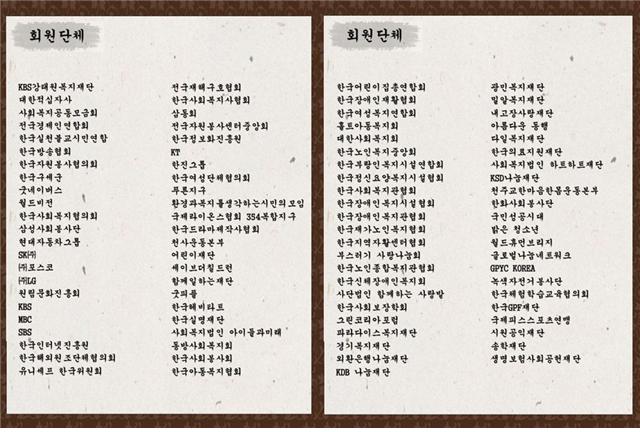 회원단체
KBS강태원복지재단
대한적십자사
사회복지공동모금회
전국경제인연합회
한국실천불교시민연합
한국방송협회
한국자원봉사협의회
한국구세군
굿네이버스
월드비전
한국사회복지협의회
삼성사회봉사단
현대자동차그룹
SK㈜
㈜포스코
㈜LG
원림문화진흥회
KBS
MBC
SBS
한국인터넷진흥원
한국해외원조단체협의회
유니세프 한국위원회
전국재해구호협회
한국사회복지사협회
삼동회
전국자원봉사센터중앙회
한국정보화진흥원
KT
한진그룹
한국여성단체협의회
푸른지구
환경과복지를생각하는시민의모임
국제라이온스협회 354복합지구
한국드라마제작사협회
천사운동본부
어린이재단
세이브더칠드런
함께일하는재단
굿피플
한국헤비타트
한국실명재단
사회복지법인 아이들과미래
동방사회복지회
한국사회봉사회
한국아동복지협회
회원단체
한국어린이집총연합회
한국장애인재활협회
한국여성복지연합회
홀트아동복지회
대한사회복지회
한국노인복지중앙회
한국부랑인복지시설연합회
한국정신요양복지시설협회
한국사회복지관협회
한국장애인복지시설협회
한국장애인복지관협회
한국재가노인복지협회
한국지역자활센터협회
부스러기 사랑나눔회
한국노인종합복지관협회
한국신체장애인복지회
사단법인 함께하는 사랑밭
한국사회보장학회
그린코리아포럼
파라다이스복지재단
경기복지재단
외환은행나눔재단
KDB 나눔재단
광민복지재단
밀알복지재단
내고장사랑재단
아름다운 동행
다일복지재단
한국의료지원재단
사회복지법인 하트하트재단
KSD나눔재단
천주교한마음한몸운동본부
한화사회봉사단
국민성공시대
밝은 청소년
월드휴먼브리지
글로벌나눔네트워크
GPYC KOREA
녹색자전거봉사단
한국체험학습교육협의회
한국GPF재단
국제피스스포츠연맹
시원공익재단
송학재단
생명보험사회공헌재단